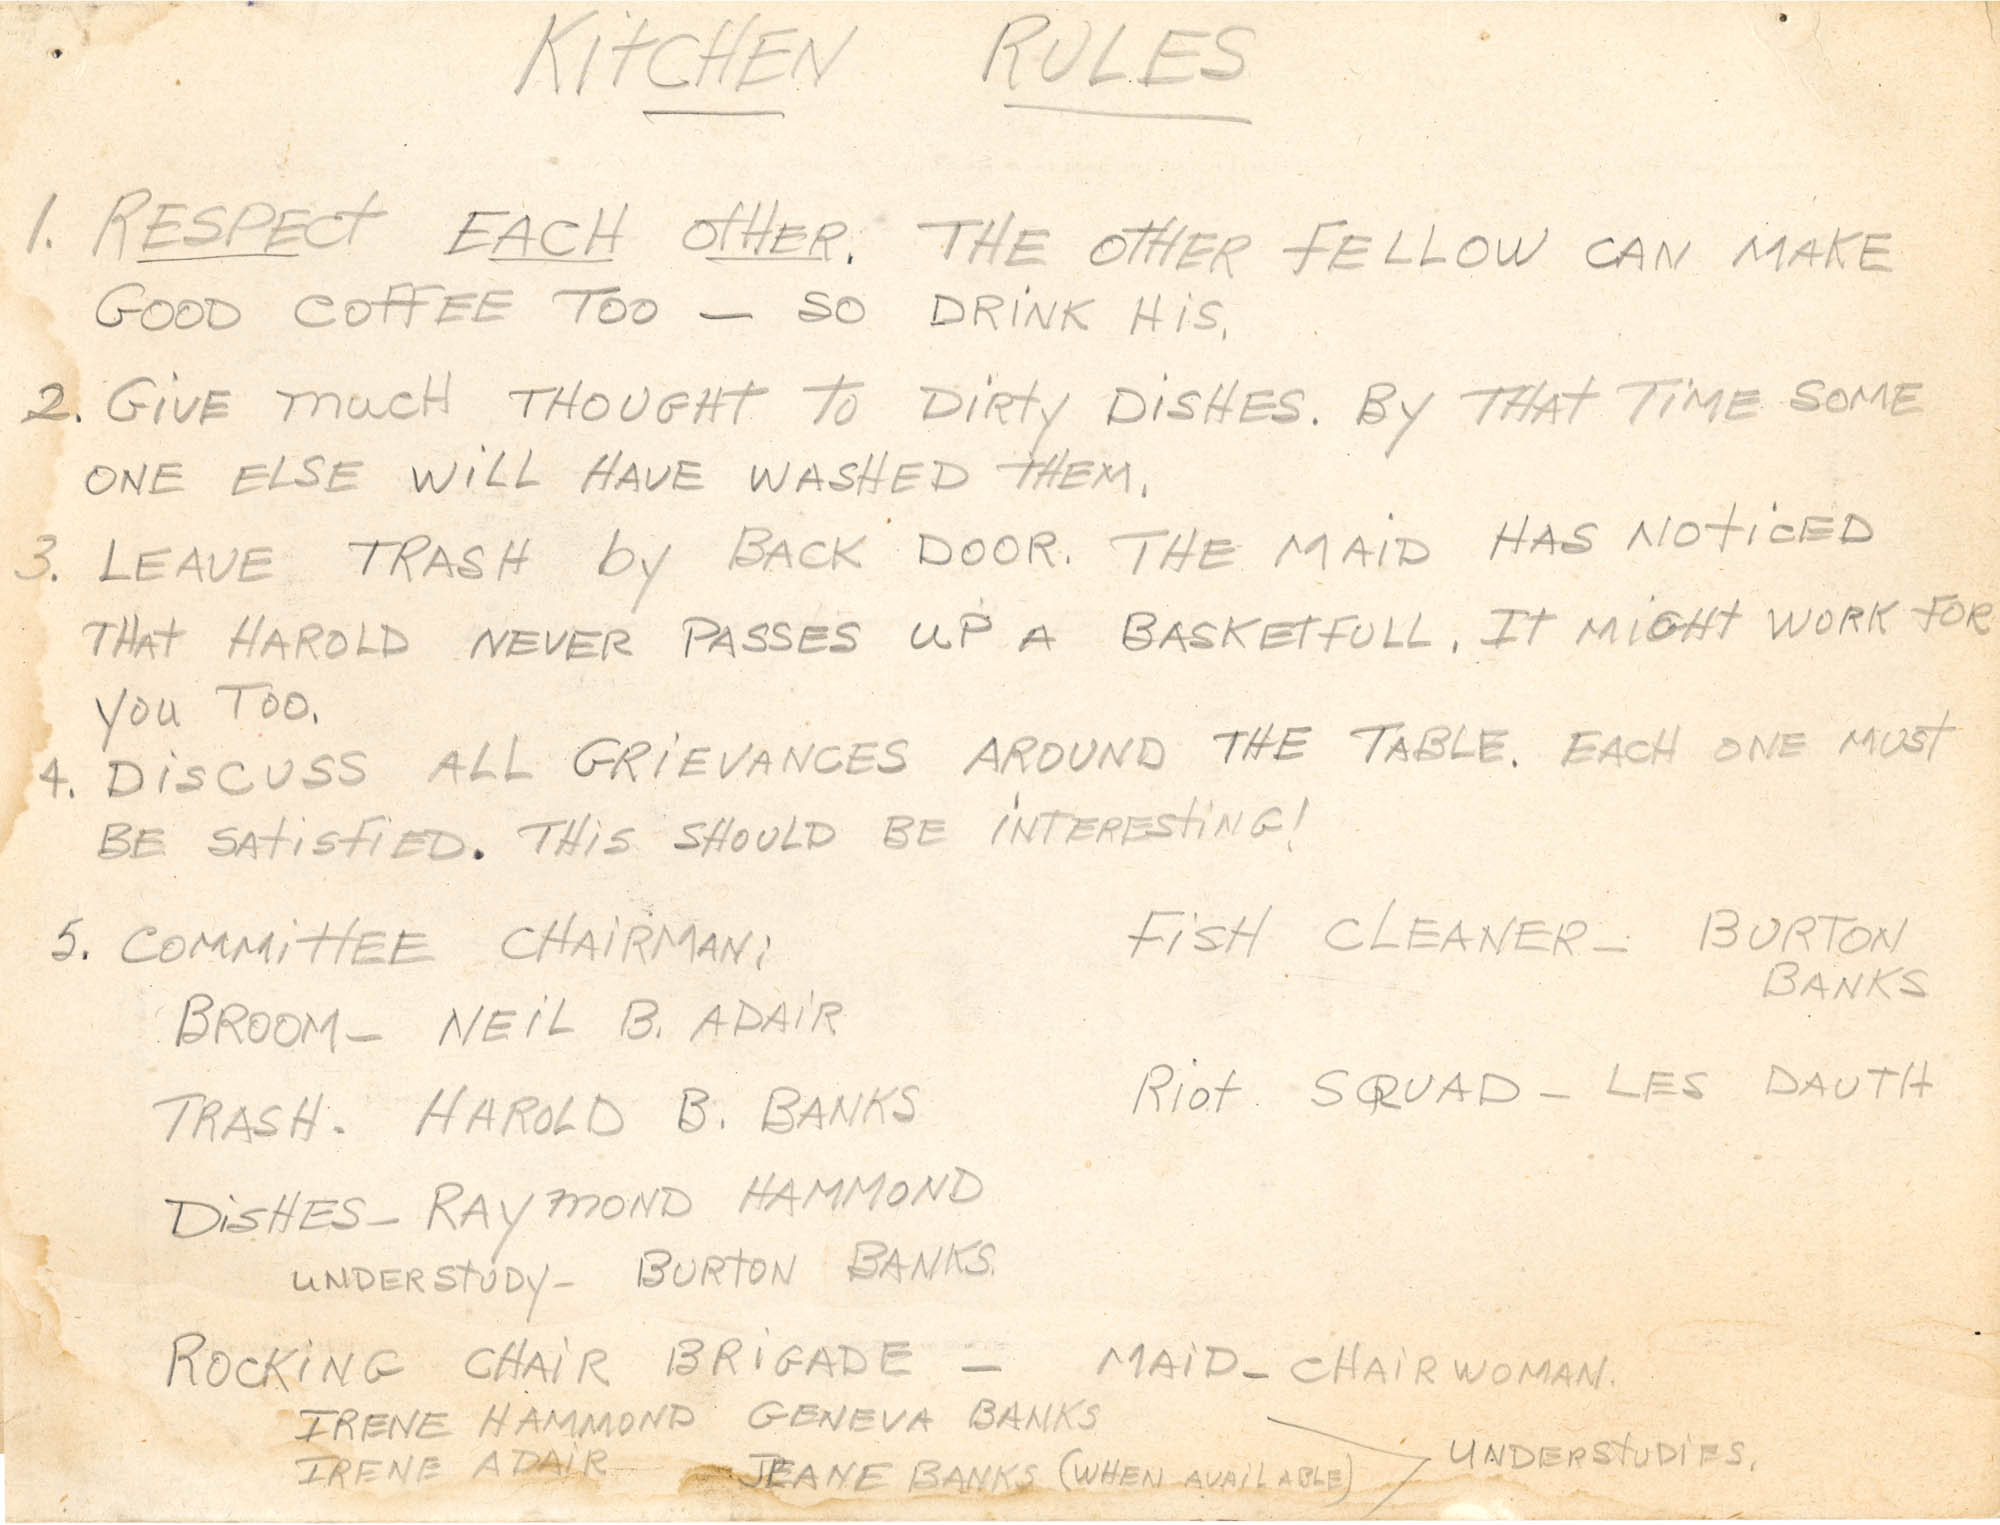 KitCHEN RULES
1. RESPECt EACH OtHER. THE OtHER FELLOW CAN MAKE
GOOD COFFEE TOO — SO DRiNK HiS.
2. GiVE mucH THOUGHt To DiRty DiSHES. By THAt TiME SOME
ONE ELSE WiLL HAVE WASHED tHEM.
3. LEAVE TRASH by BACK DOOR. THE MAiD HAS NOtiCED
THAt HAROLD NEVER PASSES UP A BASKEtFULL. It MiGHt WORK FOR
you Too.
4. DiSCUSS ALL GRiEVANCES AROUND THE TABLE. EACH ONE MUSt
BE SAtiSFiED. THiS SHOULD BE iNTERESTiNG!
5. COMMittEE CHAiRMAN:
BROOM — NEiL B. ADAiR
TRASH - HAROLD B. BANKS
DiSHES — RAymOND HAMMOND
UNDERStUDy — BURtON BANKS.
FiSH CLEANER — BURTON
BANKS
Riot SQUAD — LES DAUTH
ROCKiNG CHAiR BRiGADE — MAiD — CHAiRWOMAN.
IRENE HAMMOND GENEVA BANKS
IRENE ADAiR JEANE BANKS (WHEN AVAiLABLE)
UNDERStUDiES.